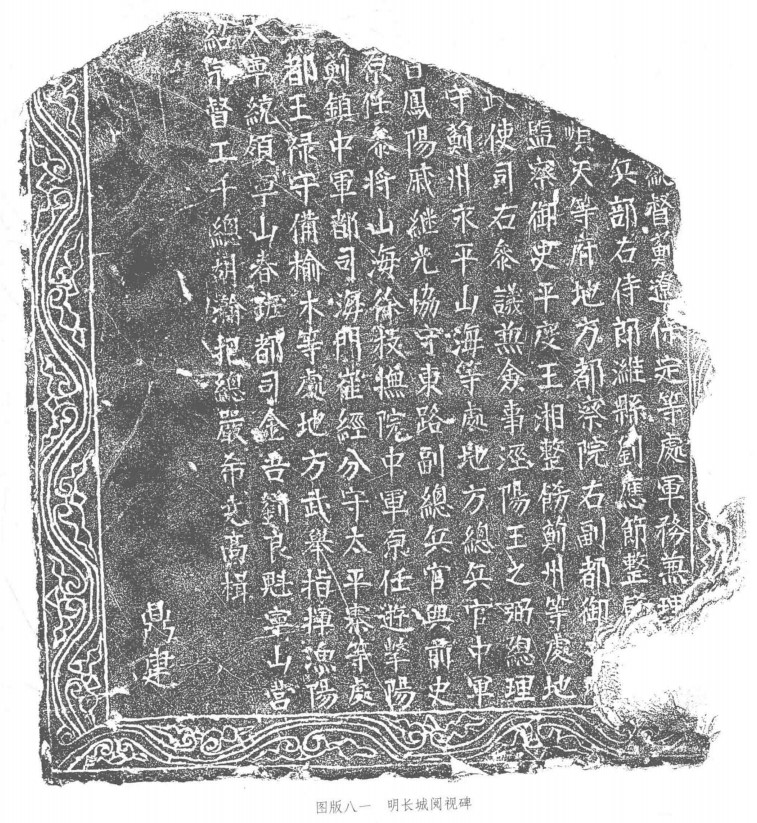 督薊遼保定等處軍務兼理
兵部右侍郎濰縣劉應節整飭
順天等府地方都察院右副都御
監察御史平度王湘整飭薊州等處地
使司右叅議兼僉事涇陽王之弼總理
守薊州永平山海等處地方總兵官中軍
鳳陽戚繼光協守東路副總兵官興前史
原任叅將山海徐枝撫院中軍原任遊擊陽
薊鎮中軍都司海門崔經分守太平寨等處
都王禄守備榆木等處地方武舉指揮漁陽
大寧統領寧山春班都司金吾劉良魁寧山营
紹宗督工千總胡瀚把總嚴希尭高楫
鼎建
图版八一 明长城阅视碑